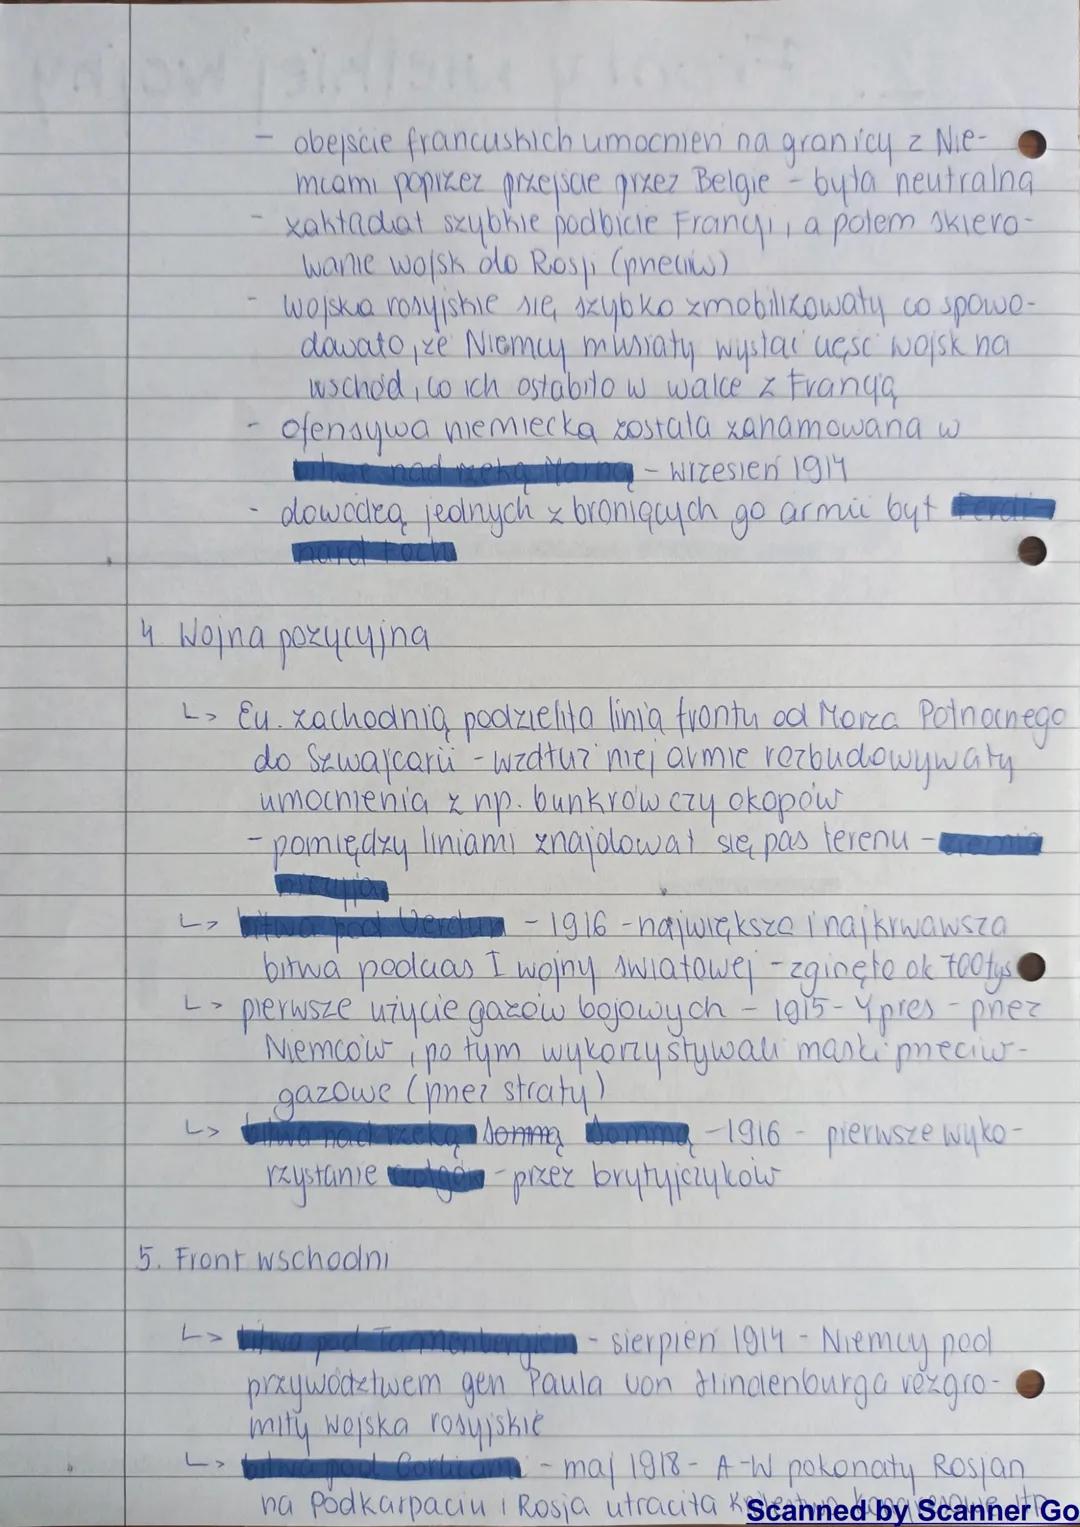 - obejście francuskich umocnień na granicy z Nie-
mcami poprzez przejście przez Belgię - była neutralna
- zakładał szybkie podbicie Francji, a potem skiero-
wanie wojsk do Rosji (przeciw)
- wojska rosyjskie się szybko zmobilizowały co spowo-
dowało, że Niemcy musiały wysłać część wojsk na
wschód, co ich osłabiło w walce z Francją
- ofensywa niemiecka została zahamowana w
bitwie nad rzeką Marną - wrzesień 1914
- dowódcą jednych z broniących go armii był Ferdi-
nand Foch
4. Wojna pozycyjna
↳ Eu. zachodnią podzieliła linia frontu od Morza Północnego
do Szwajcarii - wzdłuż niej armie rozbudowywały
umocnienia z np. bunkrów czy okopów
- pomiędzy liniami znajdował się pas terenu - ziemia
niczyja
↳ bitwa pod Verdun - 1916 - największa i najkrwawsza
bitwa podczas I wojny światowej - zginęło ok 700 tys
↳ pierwsze użycie gazów bojowych - 1915 - Ypres - przez
Niemców, po tym wykorzystywali maski przeciw-
gazowe (przez straty)
↳ bitwa nad rzeką Sommą Sommą - 1916 - pierwsze wyko-
rzystanie czołgów - przez brytyjczyków
5. Front wschodni
↳ bitwa pod Tannenbergiem - sierpień 1914 - Niemcy pod
przywództwem gen Paula von Hindenburga rozgro-
miły wojska rosyjskie
↳ bitwa pod Gorlicami - maj 1918 - A-W pokonały Rosjan
na Podkarpaciu i Rosja utraciła
Scanned by Scanner Go